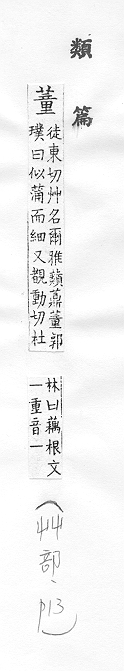 類篇
董
徒東切艸名爾雅蘱薡董郭
璞曰似蒲而細又覩動切杜
林曰藕根文
一重音一
(艸部、p13)